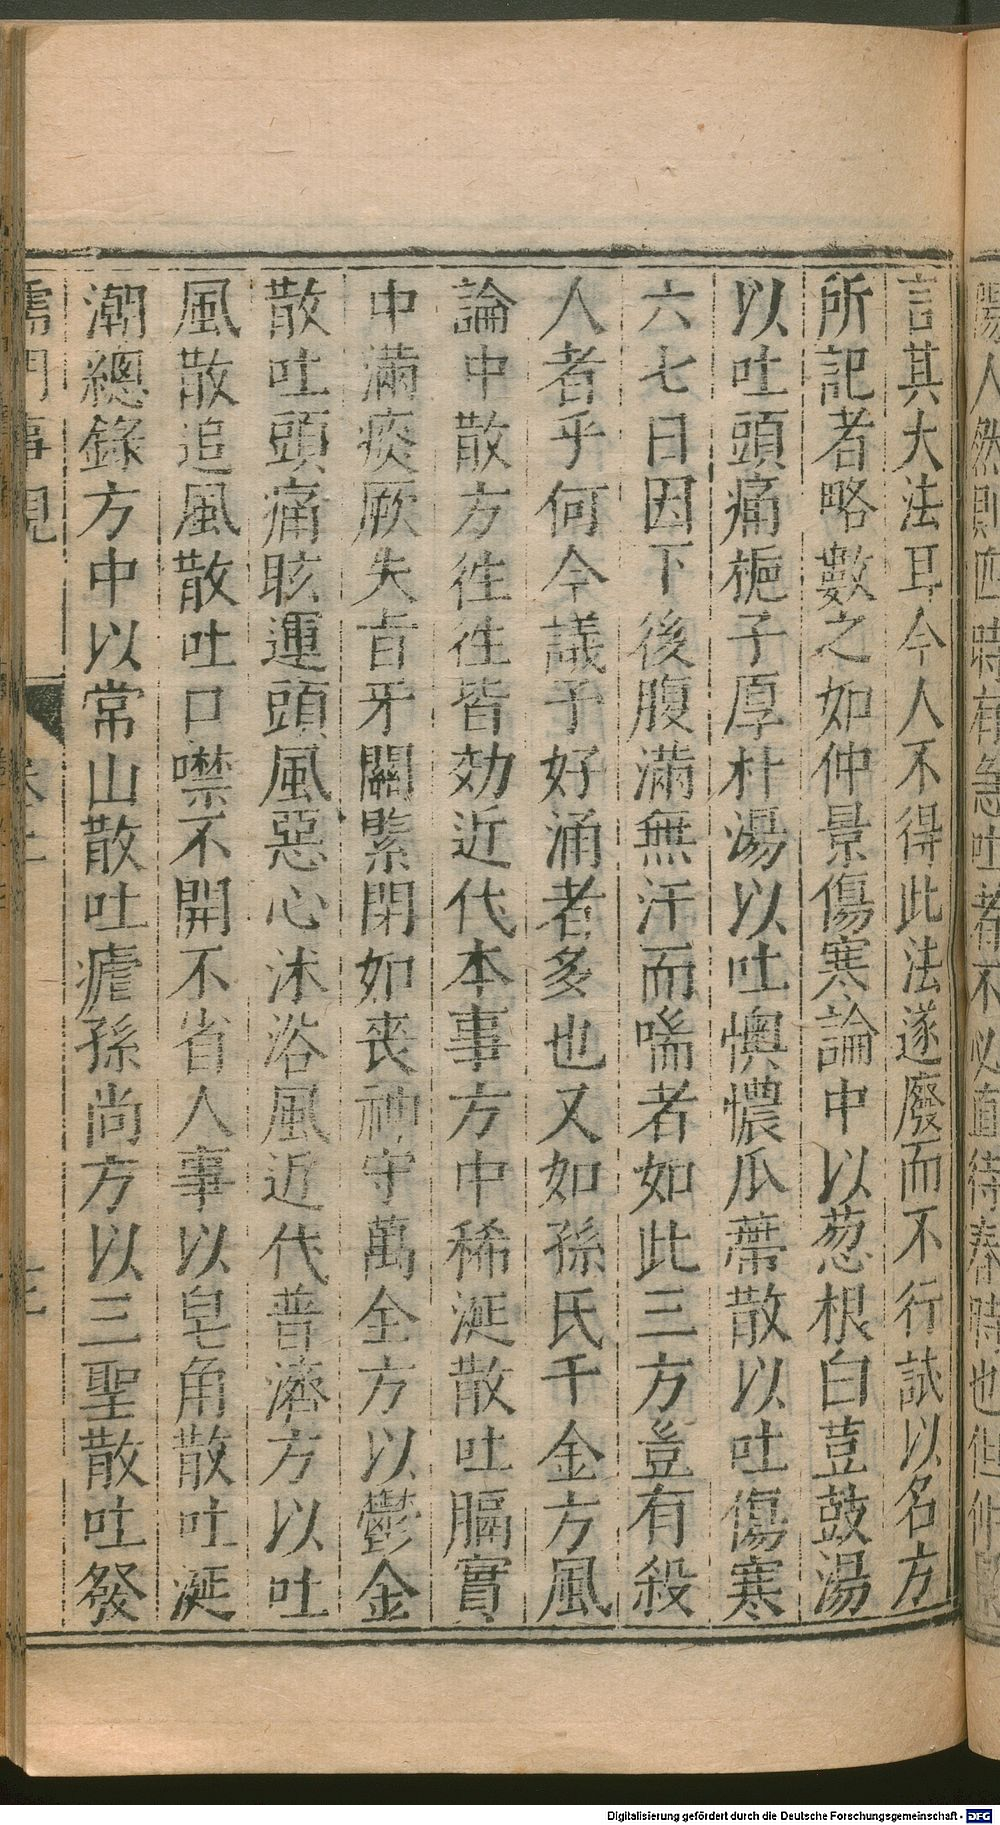 言其大法耳今人不得此法遂廢而不行試以名方
所記者略數之如仲景傷寒論中以葱根白荳豉湯
以吐頭痛梔子厚朴湯以吐懊憹瓜蔕散以吐傷寒
六七日因下後腹滿無汗而喘者如此三方豈有殺
人者乎何今議予好涌者多也又如孫氏千金方風
論中散方徃徃皆効近代本事方中稀涎散吐膈實
中滿痰厥失音牙關緊閉如喪神守萬全方以鬱金
散吐頭痛眩運頭風惡心沐浴風近代普濟方以吐
風散追風散吐口噤不開不省人事以皂角散吐涎
潮總錄方中以常山散吐瘧孫尚方以三聖散吐發
儒門事親
Digitalisierung gefördert durch die Deutsche Forschungsgemeinschaft - DFG